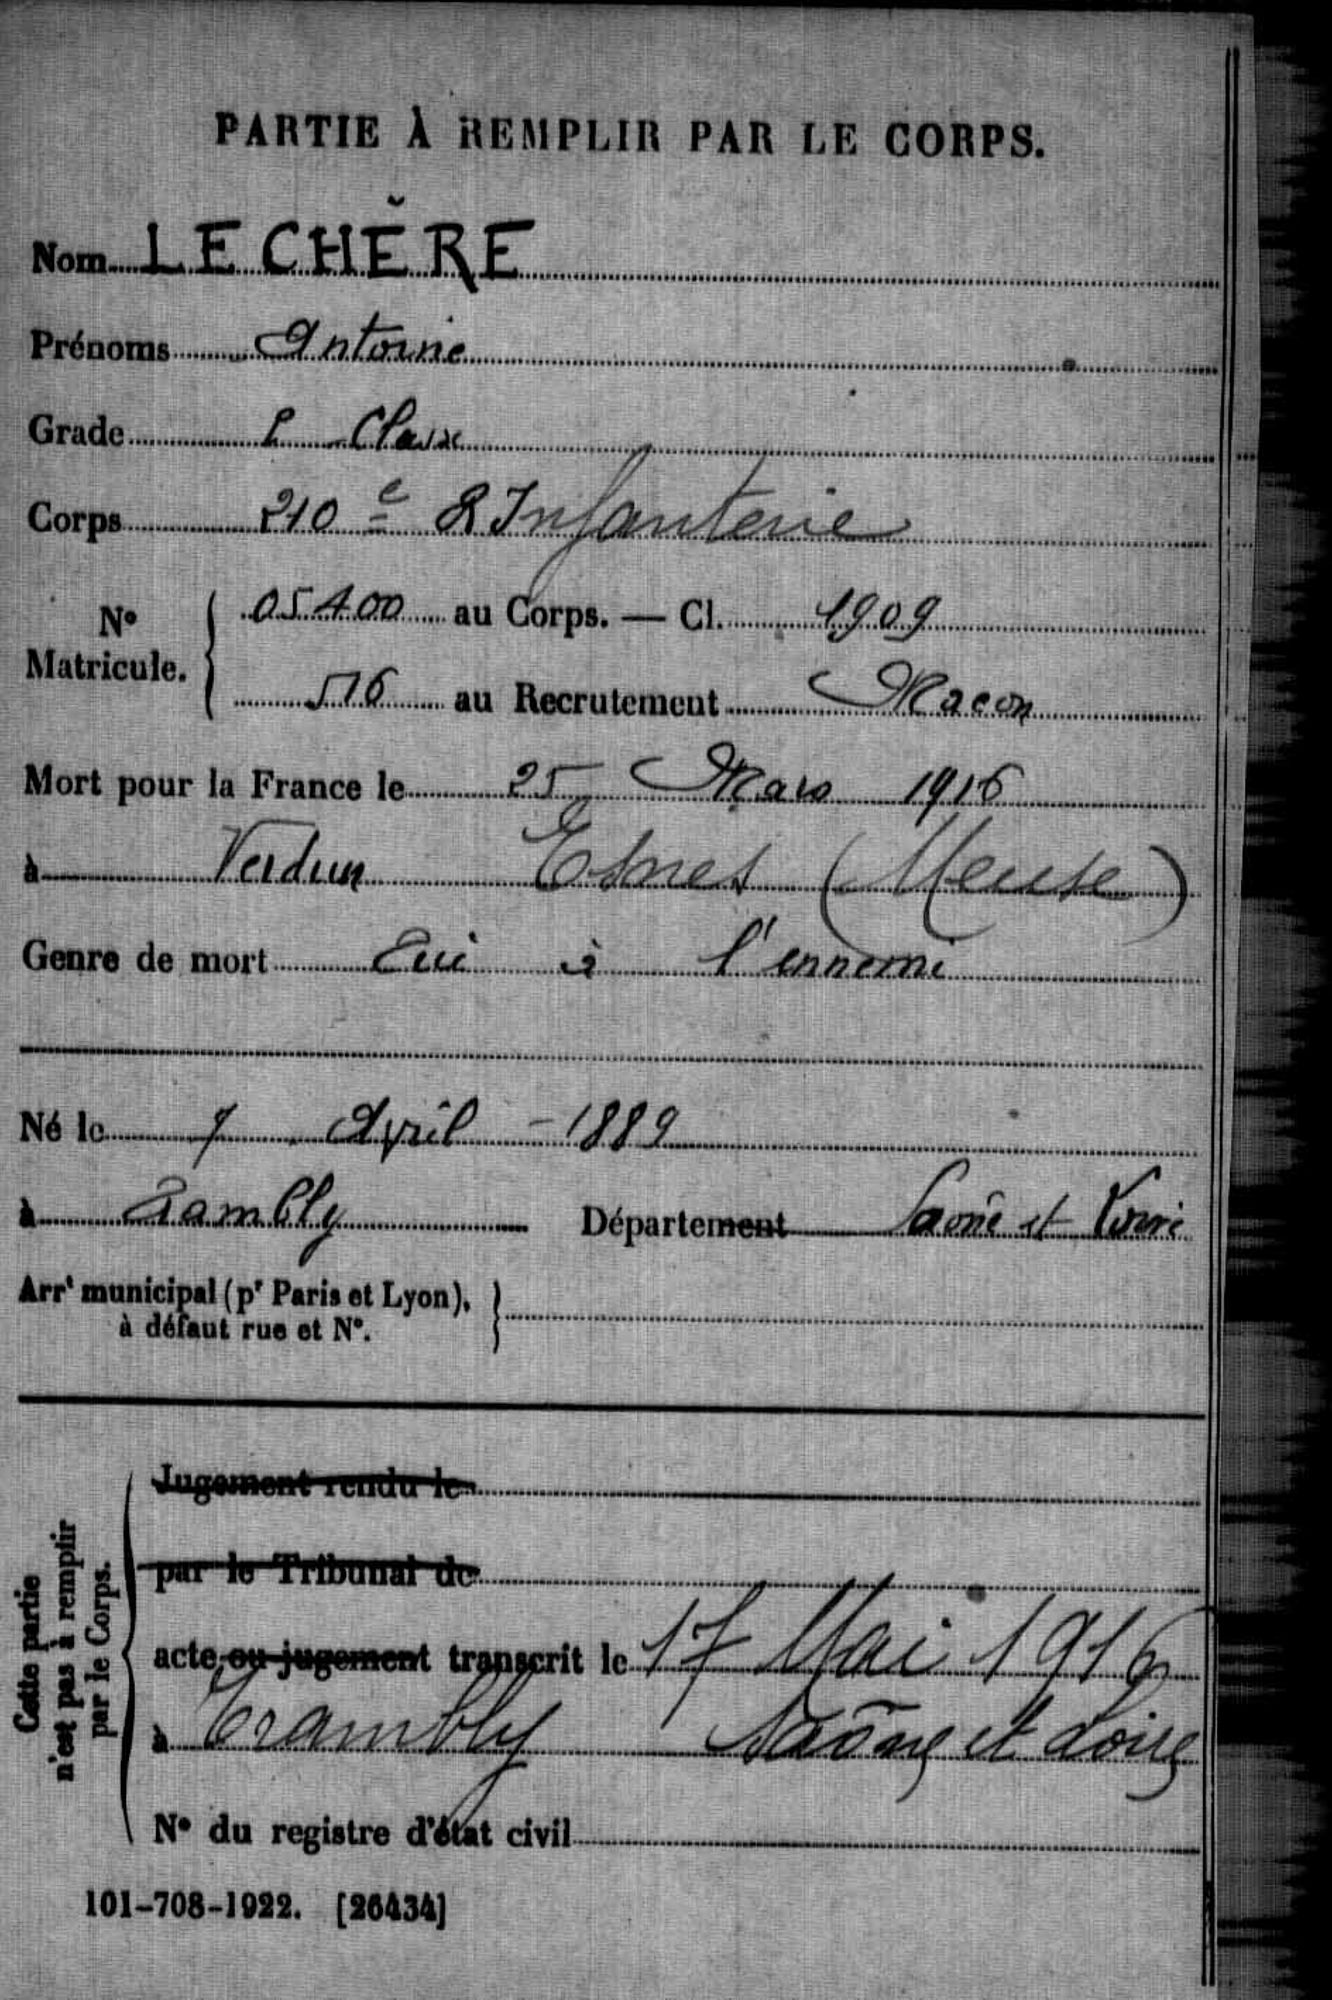 PARTIE À REMPLIR PAR LE CORPS.
Nom LECHĚRE
Prénoms Antoine
Grade 2 Classe
Corps 210e R Infanterie
No Matricule. { 05400 au Corps. — Cl. 1909
516 au Recrutement Macon
Mort pour la France le 25 Mars 1916
à Verdun Esnes (Meuse)
Genre de mort Tué à l'ennemi
Né le 7 Avril - 1889
à Trambly Département Saône et Loire
Arrt municipal (pr Paris et Lyon), à défaut rue et No. }
Cette partie n'est pas à remplir par le Corps.
Jugement rendu le
par le Tribunal de
acte ou jugement transcrit le 17 Mai 1916
à Trambly Saône et Loire
No du registre d'état civil
101-708-1922. [26434]